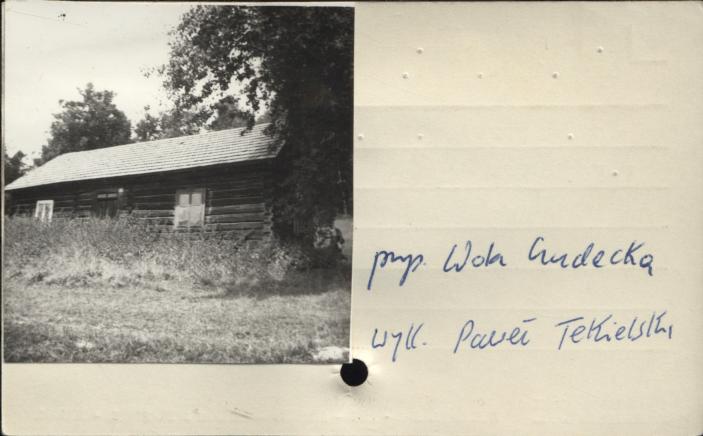 pryp. Wola Chudecka
wyk. Paweł Tekielski